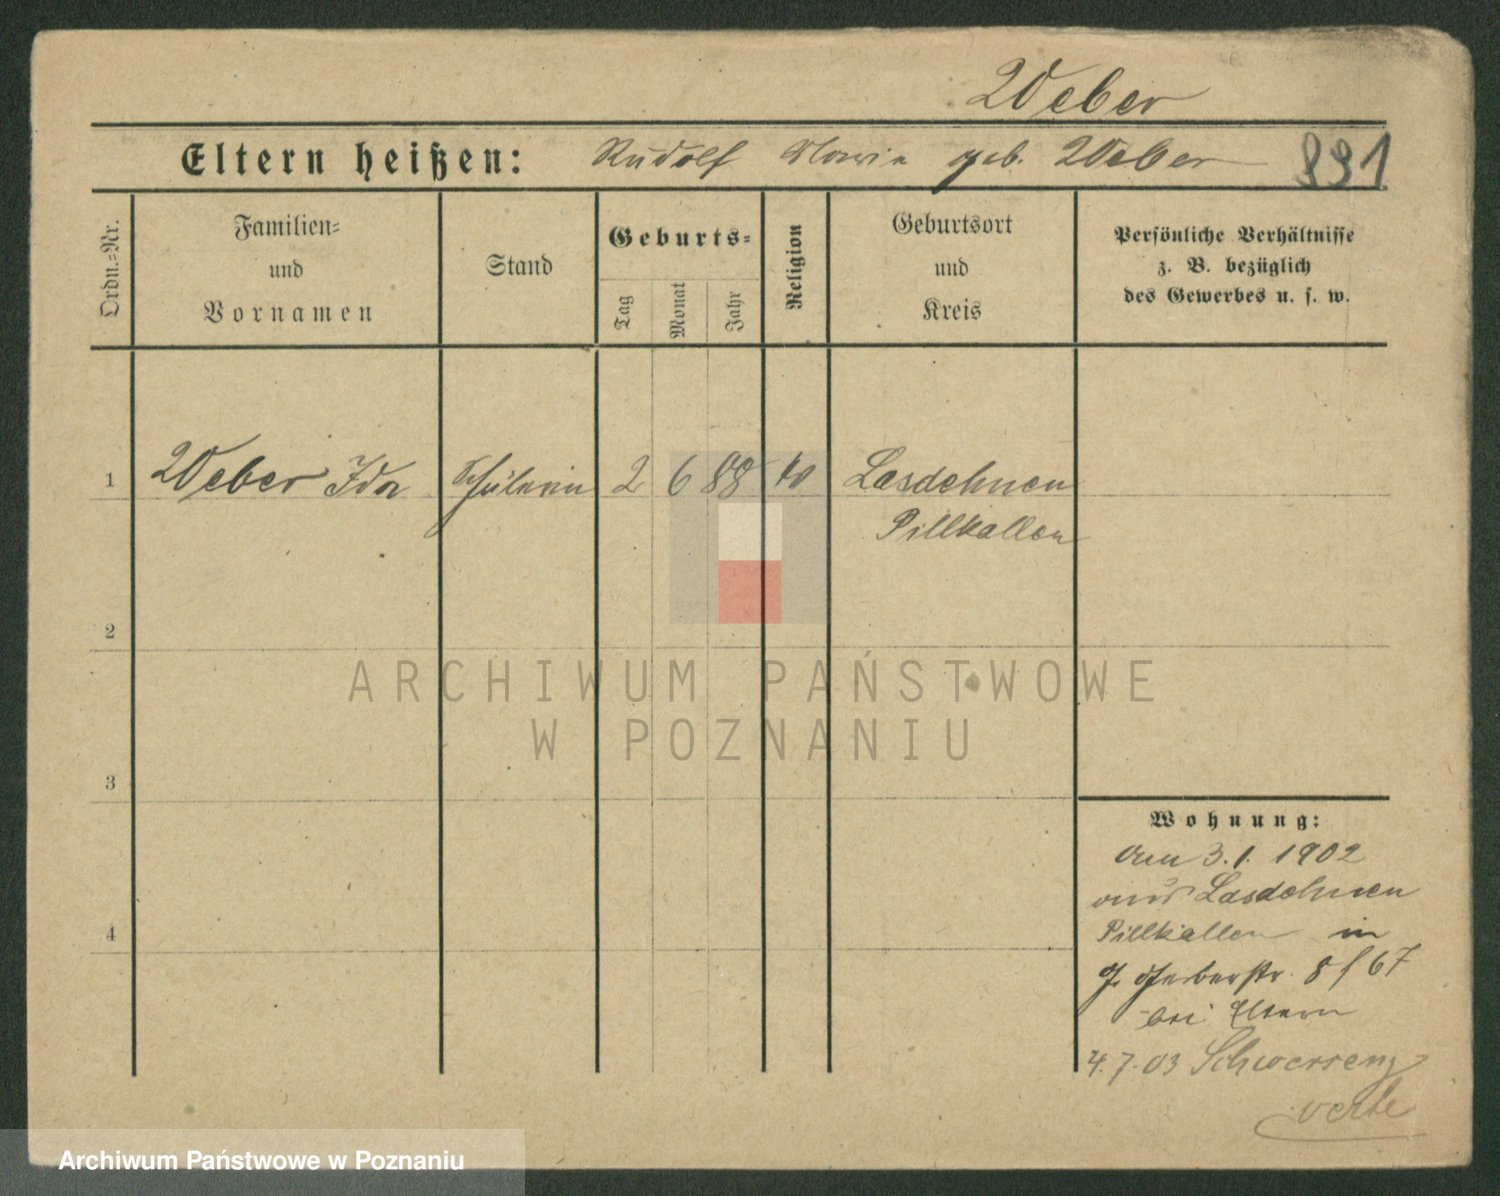 Weber
Eltern heißen: Rudolf Maria geb. Weber 891
Ordn.=Nr.
Familien=
und
Vornamen
Stand
Geburts=
Tag
Monat
Jahr
Religion
Geburtsort
und
Kreis
Persönliche Verhältnisse
z. B. bezüglich
des Gewerbes u. s. w.
1 Weber Ida Schülerin 2 6 88 Lasdehnen
Pillkallen
2
3
4
Wohnung:
am 3. 1. 1902
aus Lasdehnen
Pillkallen in
8/67
bei Eltern
4. 7. 03 Schwersenz
verte
ARCHIWUM PAŃSTWOWE
W POZNANIU
Archiwum Państwowe w Poznaniu